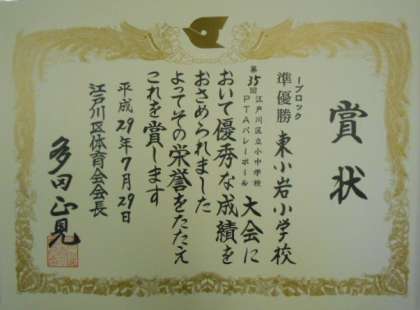 賞状
Iブロック
準優勝 東小岩小学校
第35回 江戸川区立小中学校PTAバレーボール 大会に
おいて優秀な成績を
おさめられました
よってその栄誉をたたえ
これを賞します
平成29年7月29日
江戸川区体育会会長
多田正見